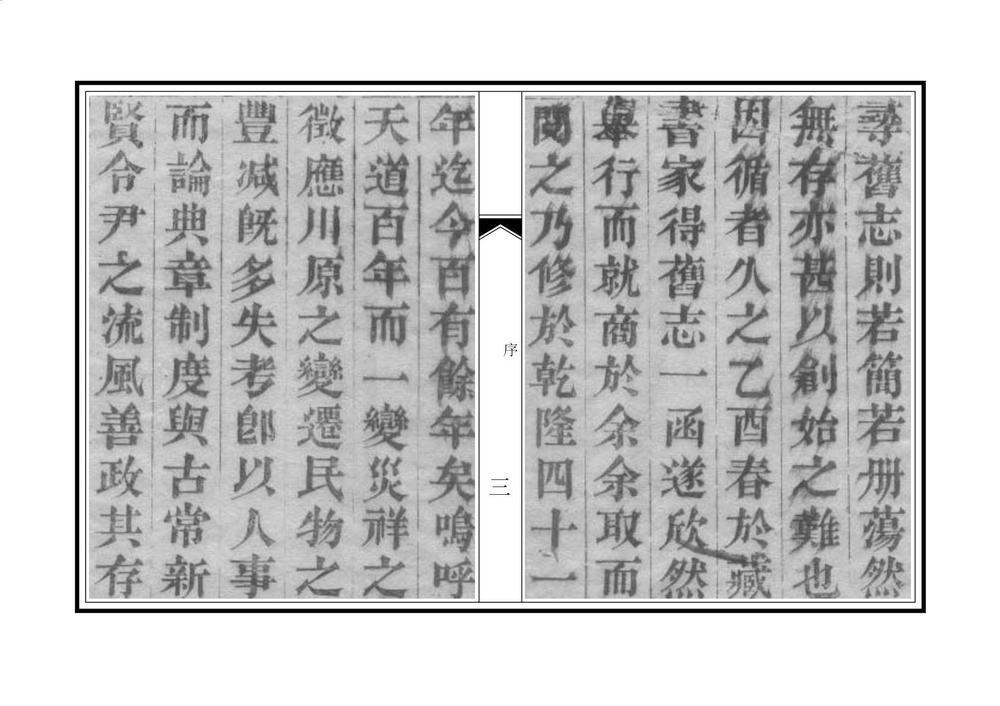 尋舊志則若簡若册蕩然
無存亦甚以創始之難也
因循者久之乙酉春於藏
書家得舊志一函遂欣然
舉行而就商於余余取而
閱之乃修於乾隆四十一
序
三
年迄今百有餘年矣嗚呼
天道百年而一變災祥之
徵應川原之變遷民物之
豐減旣多失考卽以人事
而論典章制度與古常新
賢令尹之流風善政其存